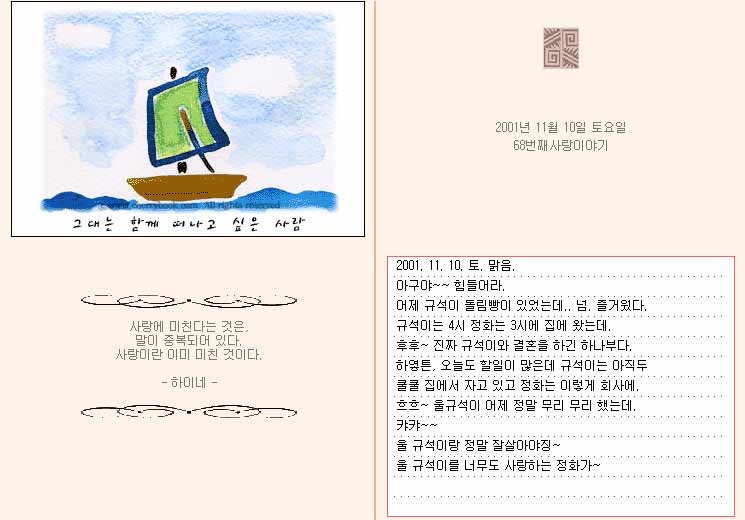 © www.coorrybook.com All rights reserved
그대는 함께 떠나고 싶은 사람
사랑에 미친다는 것은,
말이 중복되어 있다.
사랑이란 이미 미친 것이다.
- 하이네 -
2001년 11월 10일 토요일
68번째사랑이야기
2001. 11. 10. 토. 맑음.
아구야~~ 힘들어라.
어제 규석이 돌림빵이 있었는데.. 넘. 즐거웠다.
규석이는 4시 정화는 3시에 집에 왔는데.
후후~ 진짜 규석이와 결혼을 하긴 하나부다.
하영튼, 오늘도 할일이 많은데 규석이는 아직두
쿨쿨 집에서 자고 있고 정화는 이렇게 회사에.
흐흐~ 울규석이 어제 정말 무리 무리 했는데.
캬캬~~
울 규석이랑 정말 잘살아야징~
울 규석이를 너무도 사랑하는 정화가~